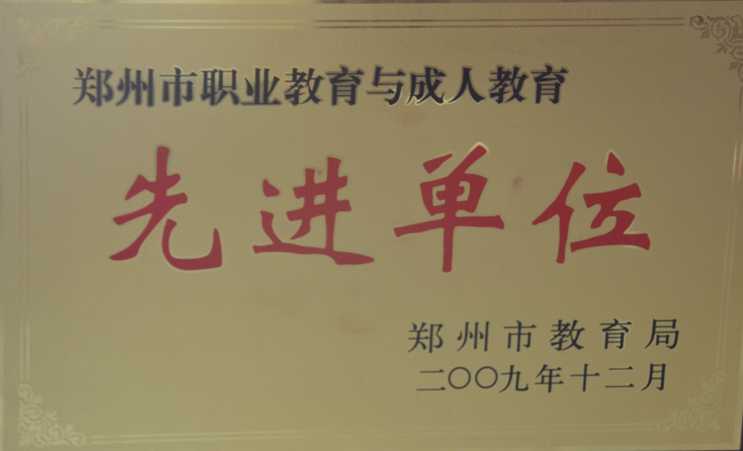 郑州市职业教育与成人教育
先进单位
郑州市教育局
二〇〇九年十二月